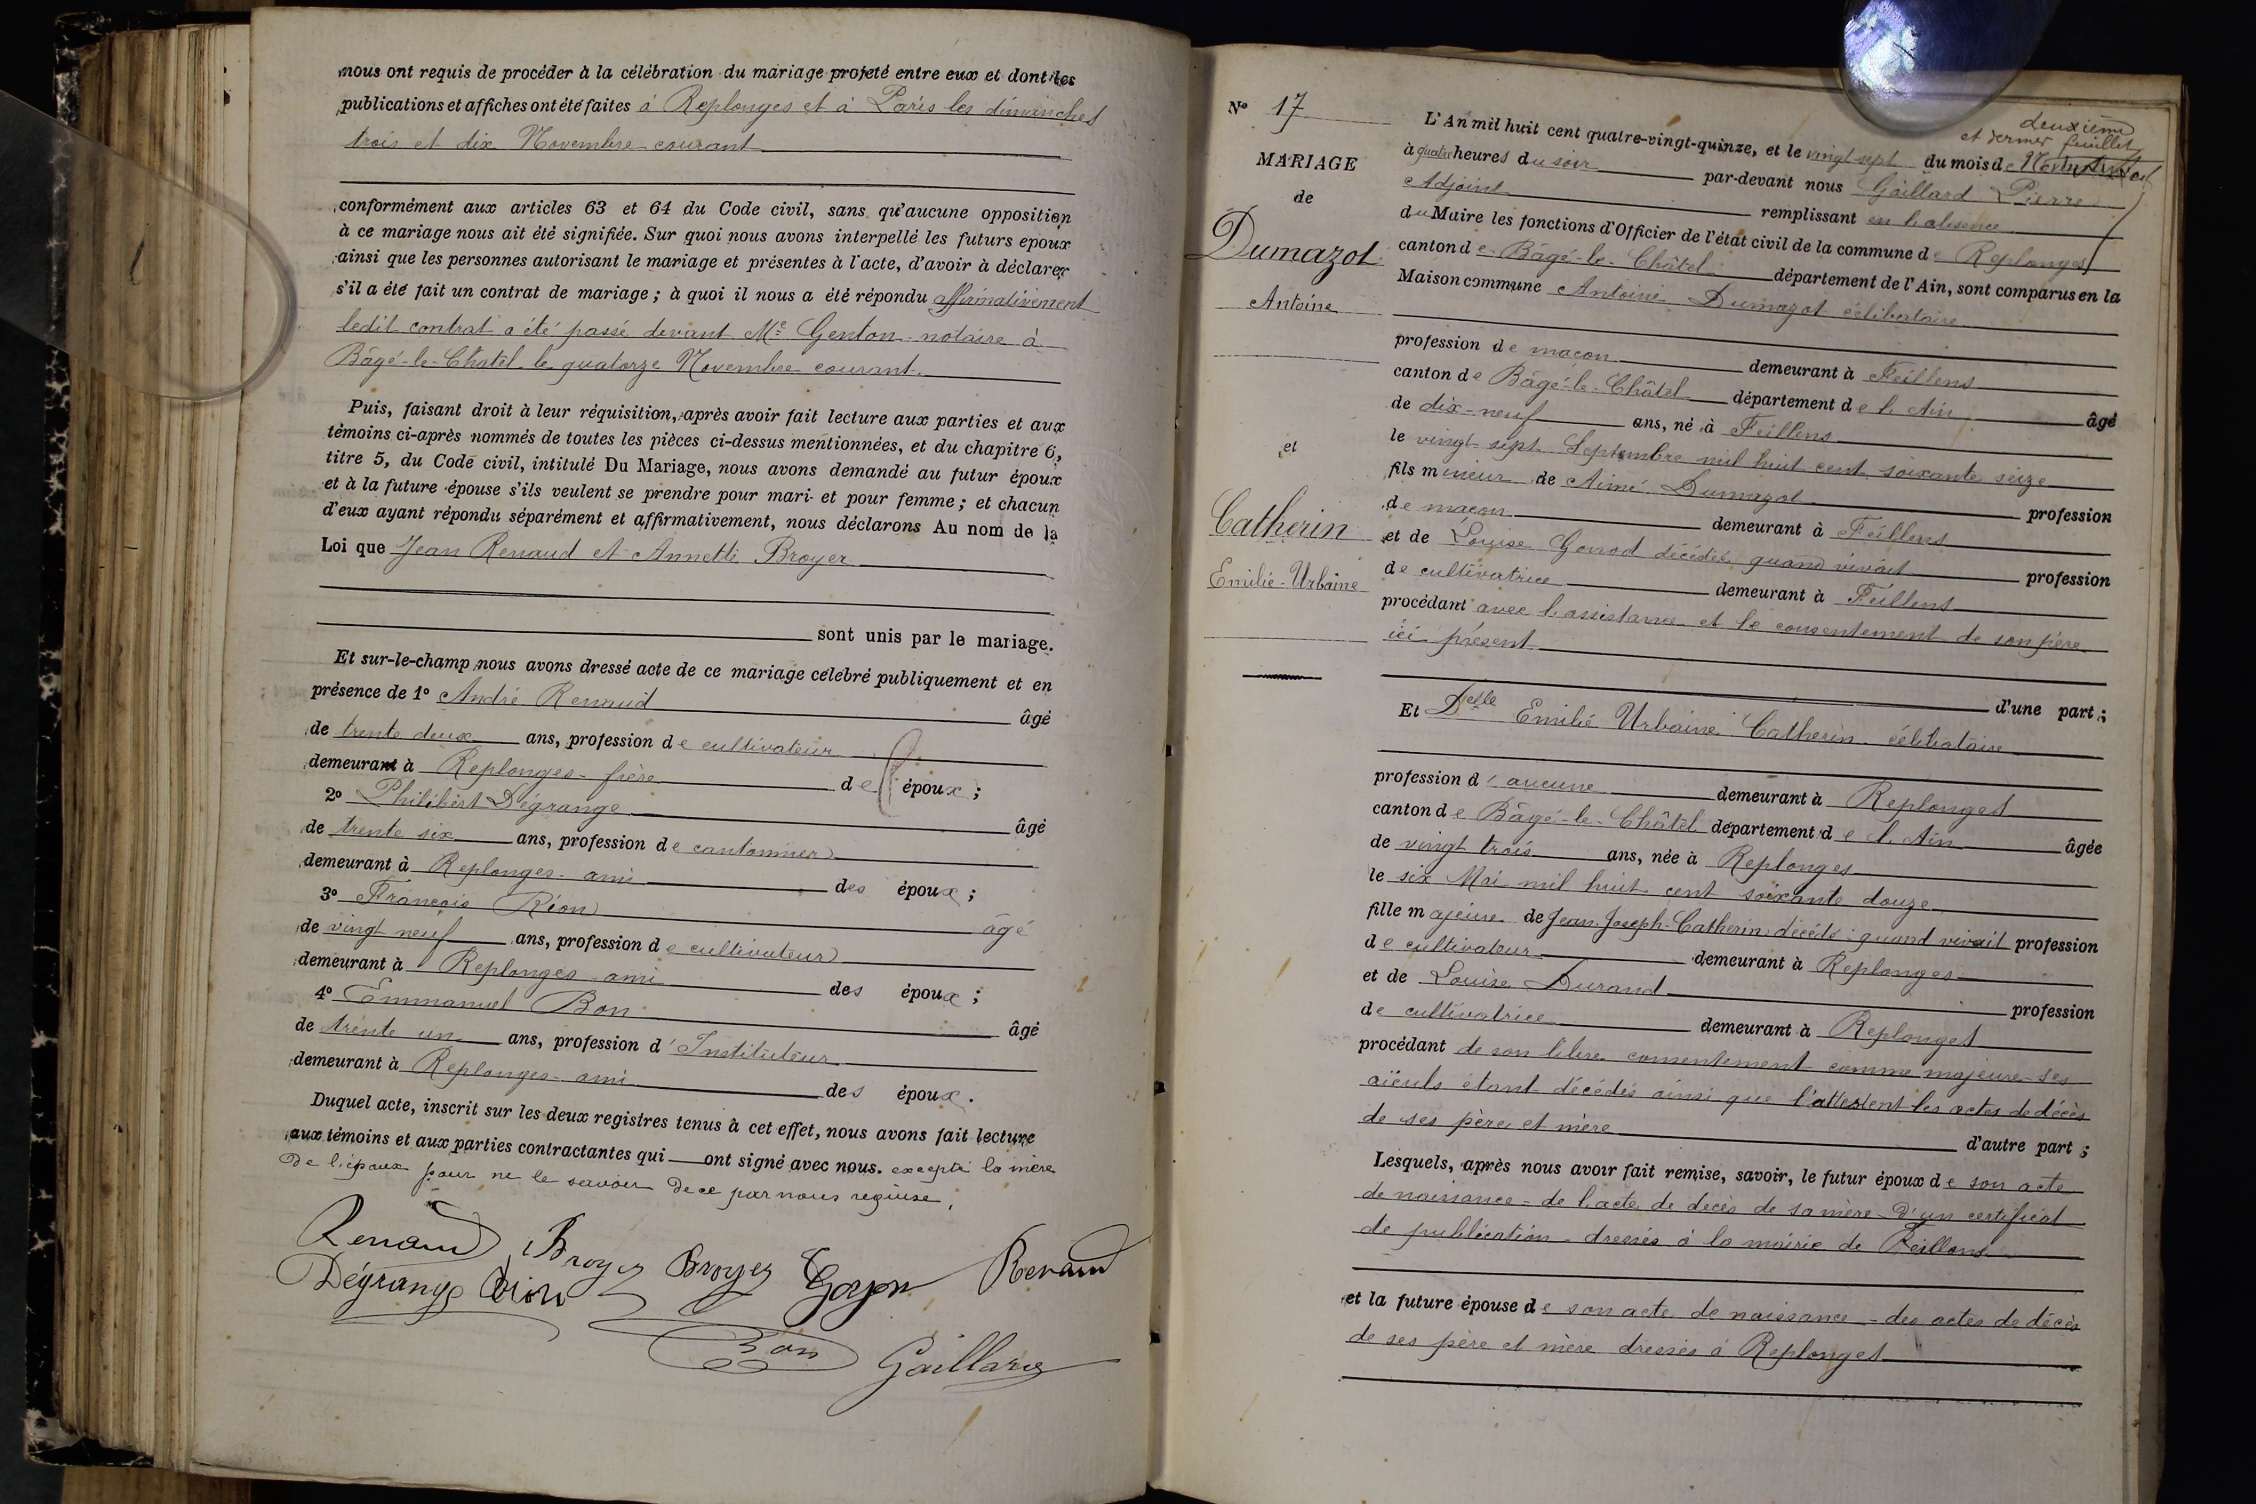 nous ont requis de procéder à la célébration du mariage projeté entre eux et dont les
publications et affiches ont été faites à Replonges et à Paris les dimanches
trois et dix Novembre courant
conformément aux articles 63 et 64 du Code civil, sans qu'aucune opposition
à ce mariage nous ait été signifiée. Sur quoi nous avons interpellé les futurs époux
ainsi que les personnes autorisant le mariage et présentes à l'acte, d'avoir à déclarer
s'il a été fait un contrat de mariage ; à quoi il nous a été répondu affirmativement
ledit contrat a été passé devant Me Genton notaire à
Bâgé-le-Chatel le quatorze Novembre courant.
Puis, faisant droit à leur réquisition, après avoir fait lecture aux parties et aux
témoins ci-après nommés de toutes les pièces ci-dessus mentionnées, et du chapitre 6,
titre 5, du Code civil, intitulé Du Mariage, nous avons demandé au futur époux
et à la future épouse s'ils veulent se prendre pour mari et pour femme ; et chacun
d'eux ayant répondu séparément et affirmativement, nous déclarons Au nom de la
Loi que Jean Renaud et Annette Broyer
sont unis par le mariage.
Et sur-le-champ nous avons dressé acte de ce mariage célébré publiquement et en
présence de 1° André Renaud âgé
de trente deux ans, profession de cultivateur
demeurant à Replonges frère de l' époux ;
2° Philibert Dégrange âgé
de trente six ans, profession de cantonnier
demeurant à Replonges - ami des époux ;
3° François Réon âgé
de vingt neuf ans, profession de cultivateur
demeurant à Replonges ami des époux ;
4° Emmanuel Bon âgé
de trente un ans, profession d'Instituteur
demeurant à Replonges - ami des époux.
Duquel acte, inscrit sur les deux registres tenus à cet effet, nous avons fait lecture
aux témoins et aux parties contractantes qui ont signé avec nous. excepté la mère
de l'époux pour ne le savoir de ce par nous requise.
Renaud Broyer Broyer Goyon Renaud
Dégrange Réon
Bon Gaillard
N° 17
MARIAGE
de
Dumazot
Antoine
et
Catherin
Emilie-Urbaine
deuxième
et dernier feuillet
L'An mil huit cent quatre-vingt-quinze, et le vingt-sept du mois de Novembre
à quatre heures du soir par-devant nous Gaillard Pierre
Adjoint remplissant en l'absence
du Maire les fonctions d'Officier de l'état civil de la commune de Replonges
canton de Bâgé-le-Châtel département de l'Ain, sont comparus en la
Maison commune Antoine Dumazot célibataire
profession de maçon demeurant à Feillens
canton de Bâgé-le-Châtel département de l'Ain âgé
de dix-neuf ans, né à Feillens
le vingt sept Septembre mil huit cent soixante seize
fils mineur de Aimé Dumazot profession
de maçon demeurant à Feillens
et de Louise Gonod décédée quand vivait profession
de cultivatrice demeurant à Feillens
procédant avec l'assistance et le consentement de son père
ici présent
d'une part ;
Et Delle Emilie Urbaine Catherin célibataire
profession d'aucune demeurant à Replonges
canton de Bâgé-le-Châtel département de l'Ain âgée
de vingt trois ans, née à Replonges
le six Mai mil huit cent soixante douze
fille majeure de Jean-Joseph Catherin décédé quand vivait profession
de cultivateur demeurant à Replonges
et de Louise Durand profession
de cultivatrice demeurant à Replonges
procédant de son libre consentement comme majeure ses
aïeuls étant décédés ainsi que l'attestent les actes de décès
de ses père et mère d'autre part ;
Lesquels, après nous avoir fait remise, savoir, le futur époux de son acte
de naissance - de l'acte de décès de sa mère - d'un certificat
de publication - dressés à la mairie de Feillens
et la future épouse de son acte de naissance - des actes de décès
de ses père et mère dressés à Replonges